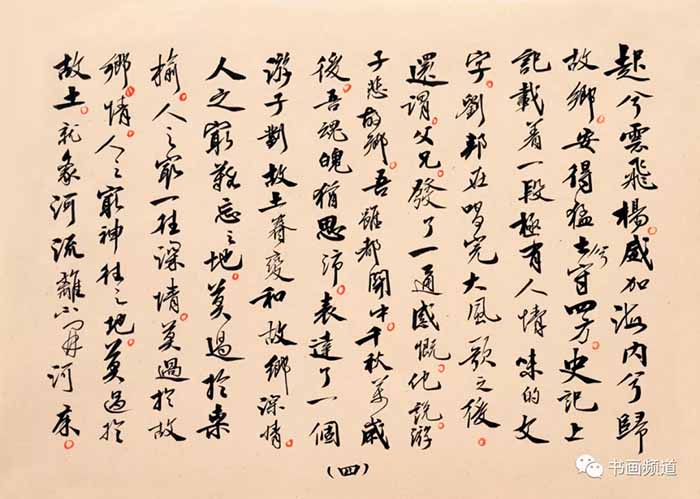 起兮雲飛楊。威加海内兮歸
故鄉。安得猛士兮守四方。史記上
記載着一段極有人情味的文
字。劉邦在唱完大風歌之後。
還謂。父兄。發了一通感慨。他説游
子悲故鄉。吾雖都關中。千秋萬歲
後。吾魂魄猶思沛。表達了一個
游子對故土眷戀和故鄉深情。
人之最難忘之地。莫過於桑
榆。人之最一往深情。莫過於故
鄉情。人之最神往之地。莫過於
故土。就象河流離不開河床。
(四)
书画频道